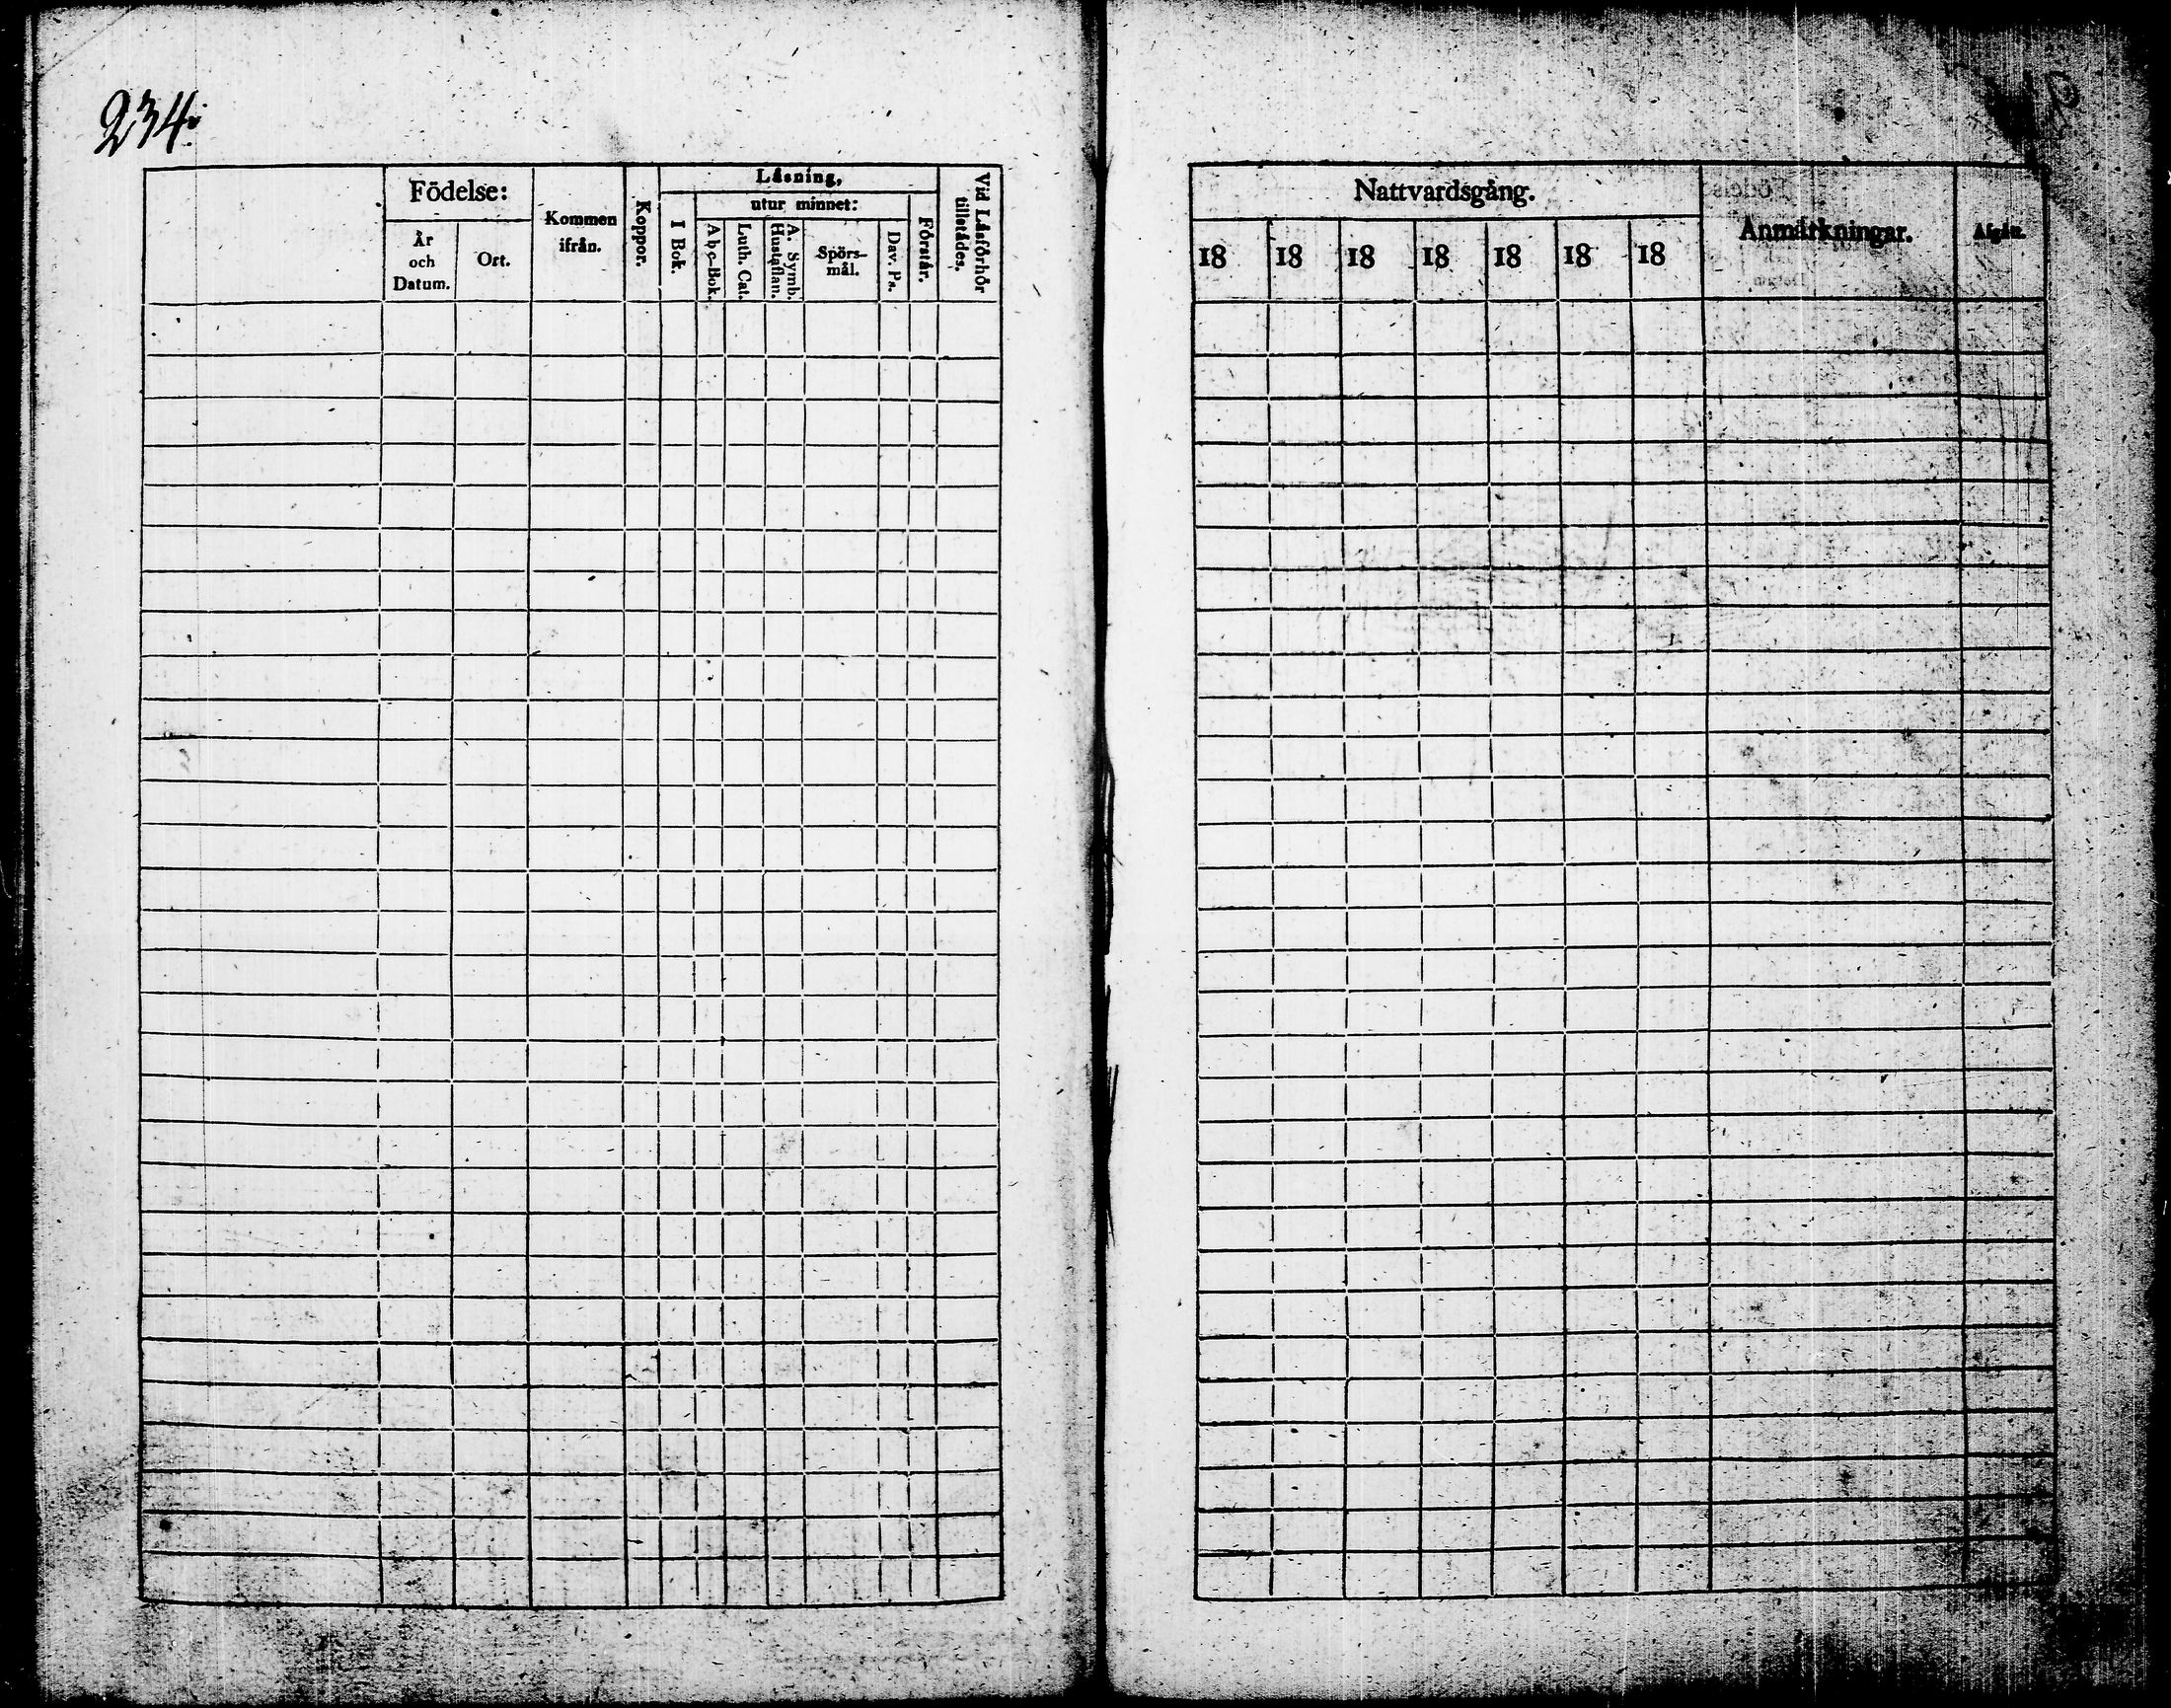 234.
Födelse:
År
och
Datum.
Ort.
Kommen
ifrån.
Koppor.
Läsning,
utur minnet:
I Bok.
Abc-Bok.
Luth. Cat.
A. Symb.
Hustaflan.
Spörs-
mål.
Dav. Ps.
Förstår.
Vid Läsförhör
tillstädes.
Nattvardsgång.
18 18 18 18 18 18 18
Anmärkningar.
Afgått.